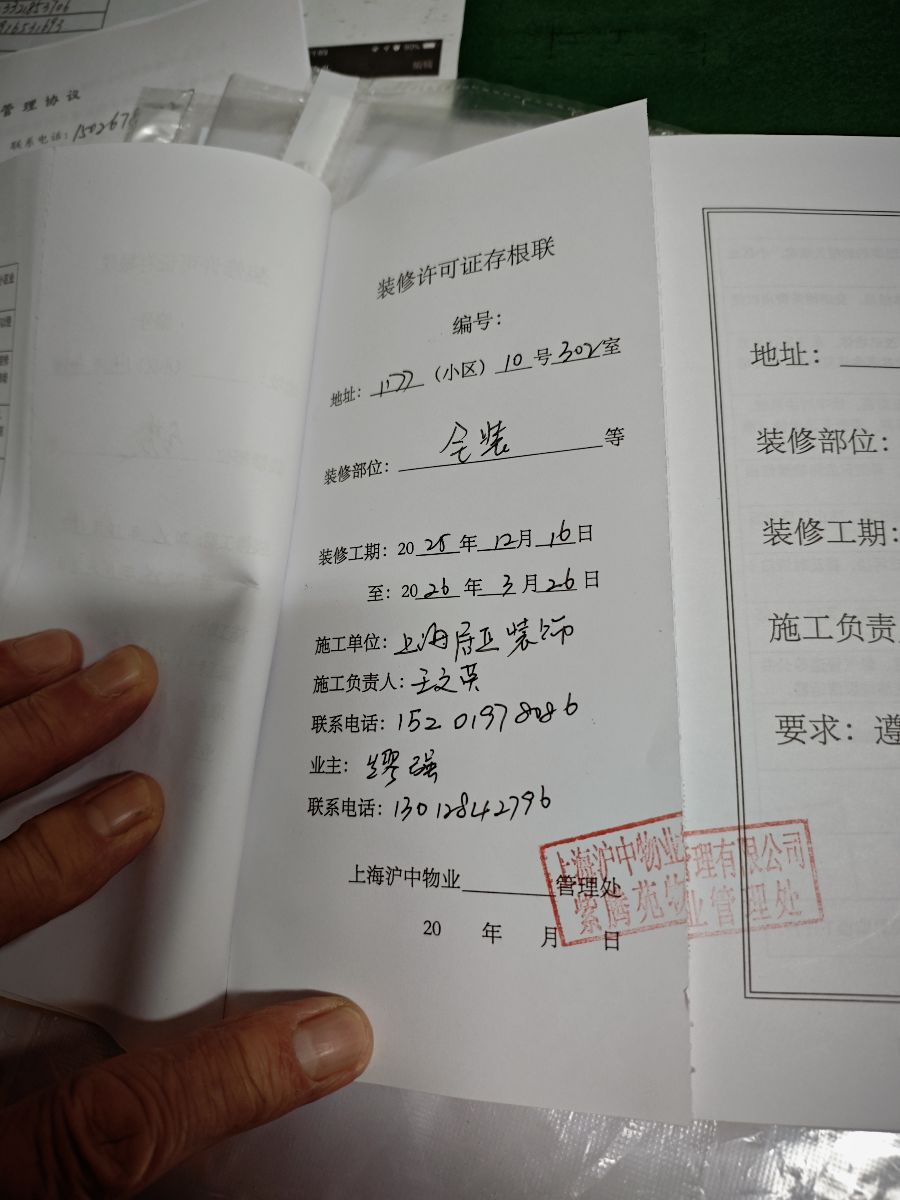 管理协议
联系电话：
装修许可证存根联
编号：
地址：1177（小区）10号302室
装修部位：全装等
装修工期：2025年12月16日
至：2026年3月26日
施工单位：上海居正装饰
施工负责人：王文英
联系电话：15201978086
业主：缪强
联系电话：13012842796
上海沪中物业 管理处
20 年 月 日
上海沪中物业管理有限公司
紫腾苑物业管理处
地址：
装修部位：
装修工期：
施工负责
要求：遵